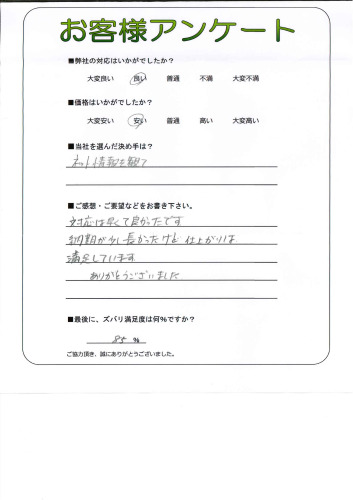 お客様アンケート
■弊社の対応はいかがでしたか？
大変良い 良い 普通 不満 大変不満
■価格はいかがでしたか？
大変安い 安い 普通 高い 大変高い
■当社を選んだ決め手は？
ネット情報を観て
■ご感想・ご要望などをお書き下さい。
対応は早くて良かったです
納期が少し長かったけど 仕上がりは
満足しています
ありがとうございました
■最後に、ズバリ満足度は何％ですか？
85 %
ご協力頂き、誠にありがとうございました。